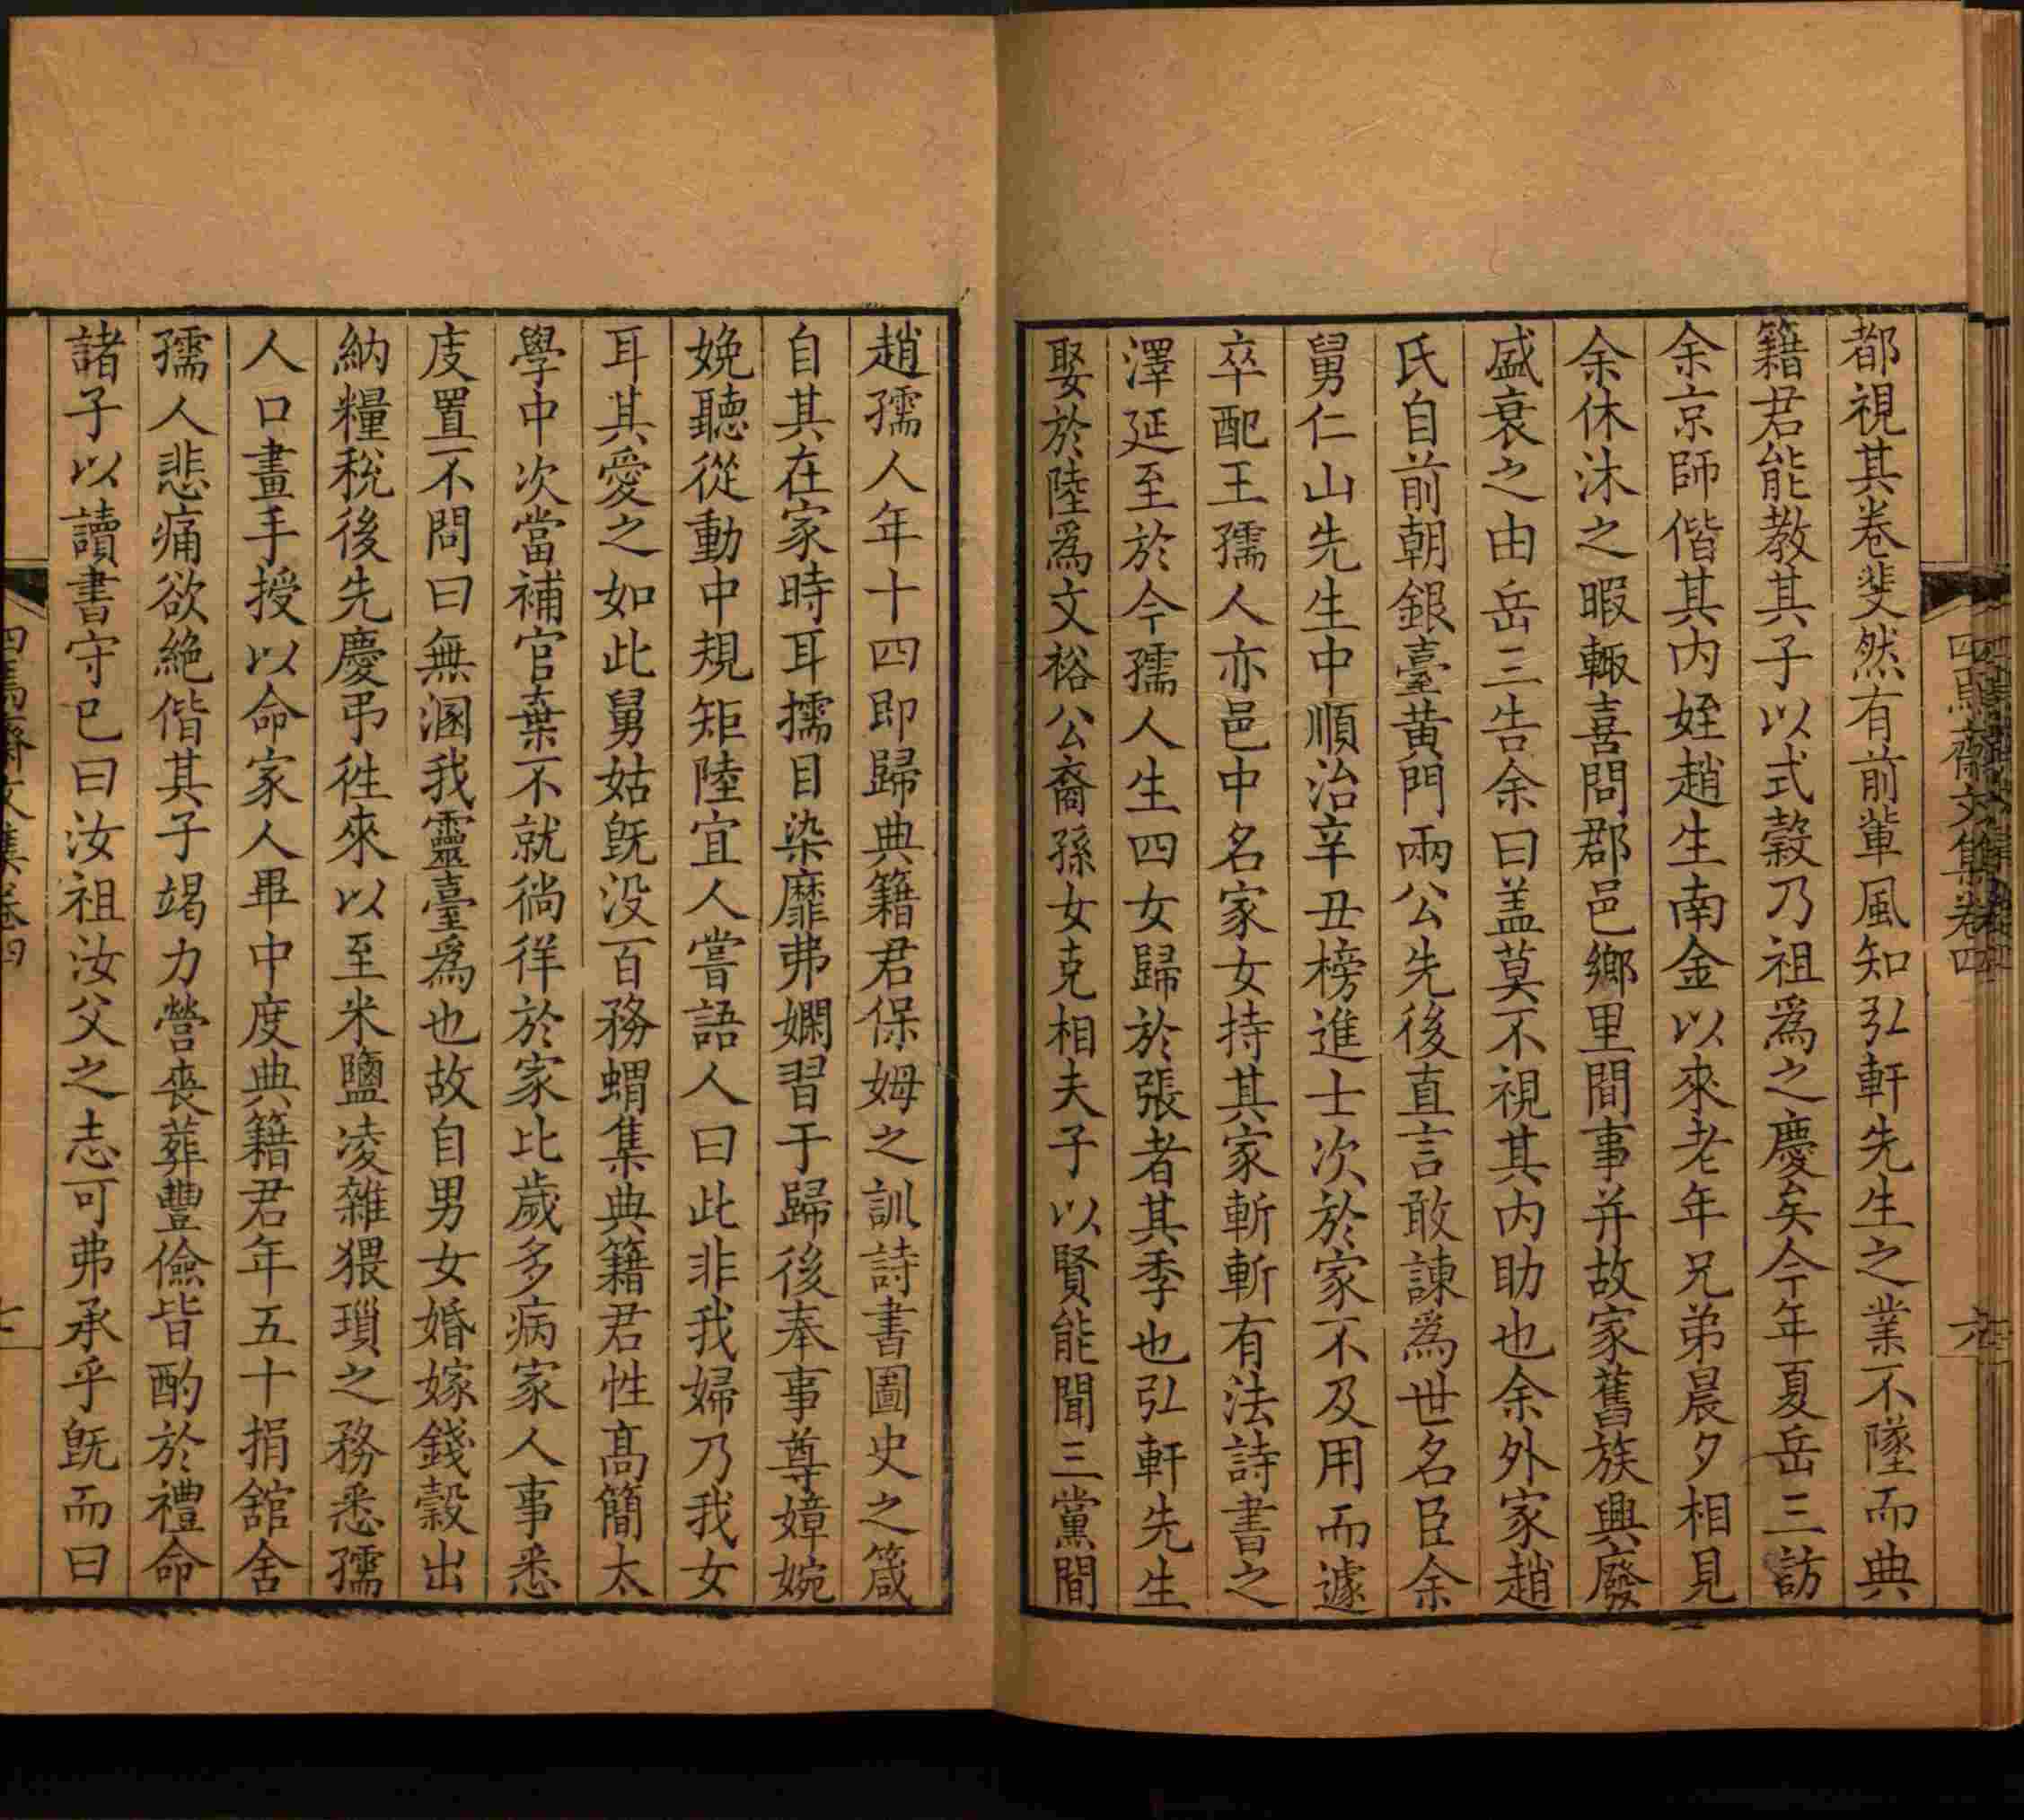 都視其卷斐然有前輩風知弘軒先生之業不墜而典
籍君能教其子以式穀乃祖為之慶矣今年夏岳三訪
余京師偕其内姪趙生南金以來老年兄弟晨夕相見
余休沐之暇輙喜問郡邑鄉里間事并故家舊族興廢
盛衰之由岳三告余曰盖莫不視其内助也余外家趙
氏自前朝銀臺黄門兩公先後直言敢諫為世名臣余
舅仁山先生中順治辛丑榜進士次於家不及用而遽
卒配王孺人亦邑中名家女持其家斬斬有法詩書之
澤延至於今孺人生四女歸於張者其季也弘軒先生
娶於陸為文裕公裔孫女克相夫子以賢能聞三黨間
趙孺人年十四即歸典籍君保姆之訓詩書圖史之箴
自其在家時耳擩目染靡弗嫻習于歸後奉事尊嫜婉
娩聽從動中規矩陸宜人嘗語人曰此非我婦乃我女
耳其愛之如此舅姑旣没百務蝟集典籍君性髙簡太
學中次當補官棄不就徜徉於家比歲多病家人事悉
庋置不問曰無溷我靈臺為也故自男女婚嫁錢穀出
納糧稅後先慶弔徃來以至米鹽凌雜猥瑣之務悉孺
人口畫手授以命家人畢中度典籍君年五十捐舘舍
孺人悲痛欲絶偕其子竭力營喪葬豐儉皆酌於禮命
諸子以讀書守已曰汝祖汝父之志可弗承乎旣而曰
四焉齋文集卷四
六